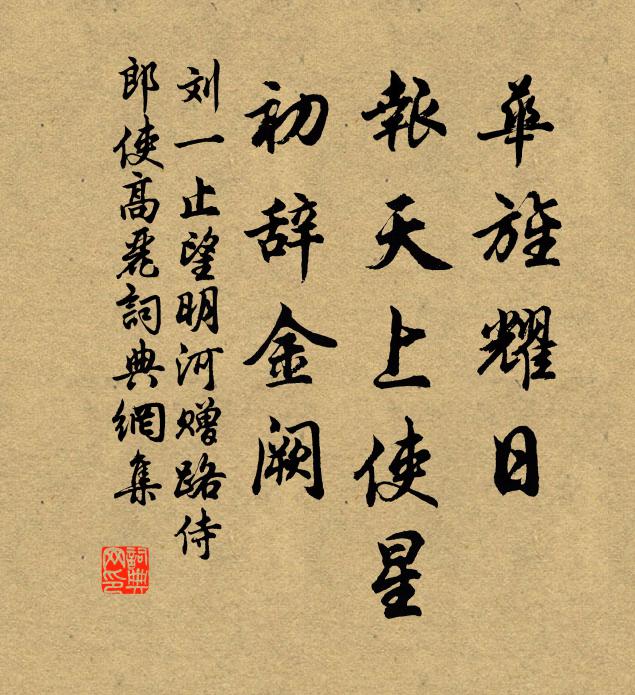 華旌耀日
報天上使星
初辞金阙
刘一止望明河赠路侍
郎使高麗詞典網集
詞典网印